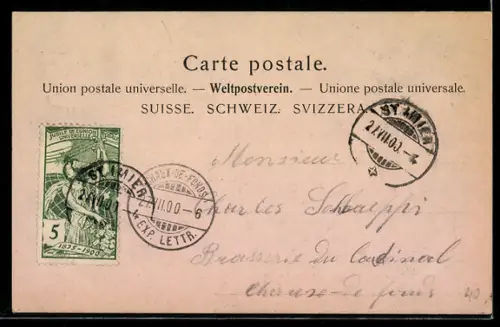 Carte postale.
Union postale universelle. — Weltpostverein. — Unione postale universale.
SUISSE. SCHWEIZ. SVIZZERA.
ST IMIER
2.XII.00.
JUBILÉ DE L'UNION
POSTALE UNIVERSELLE
5
1875-1900
ST IMIER
2.XII.00
CHAUX-DE-FONDS
XII.00-6
EXP. LETTR.
Monsieur
Charles Schlaeppi
Brasserie du Cardinal
Chaux-de-fonds